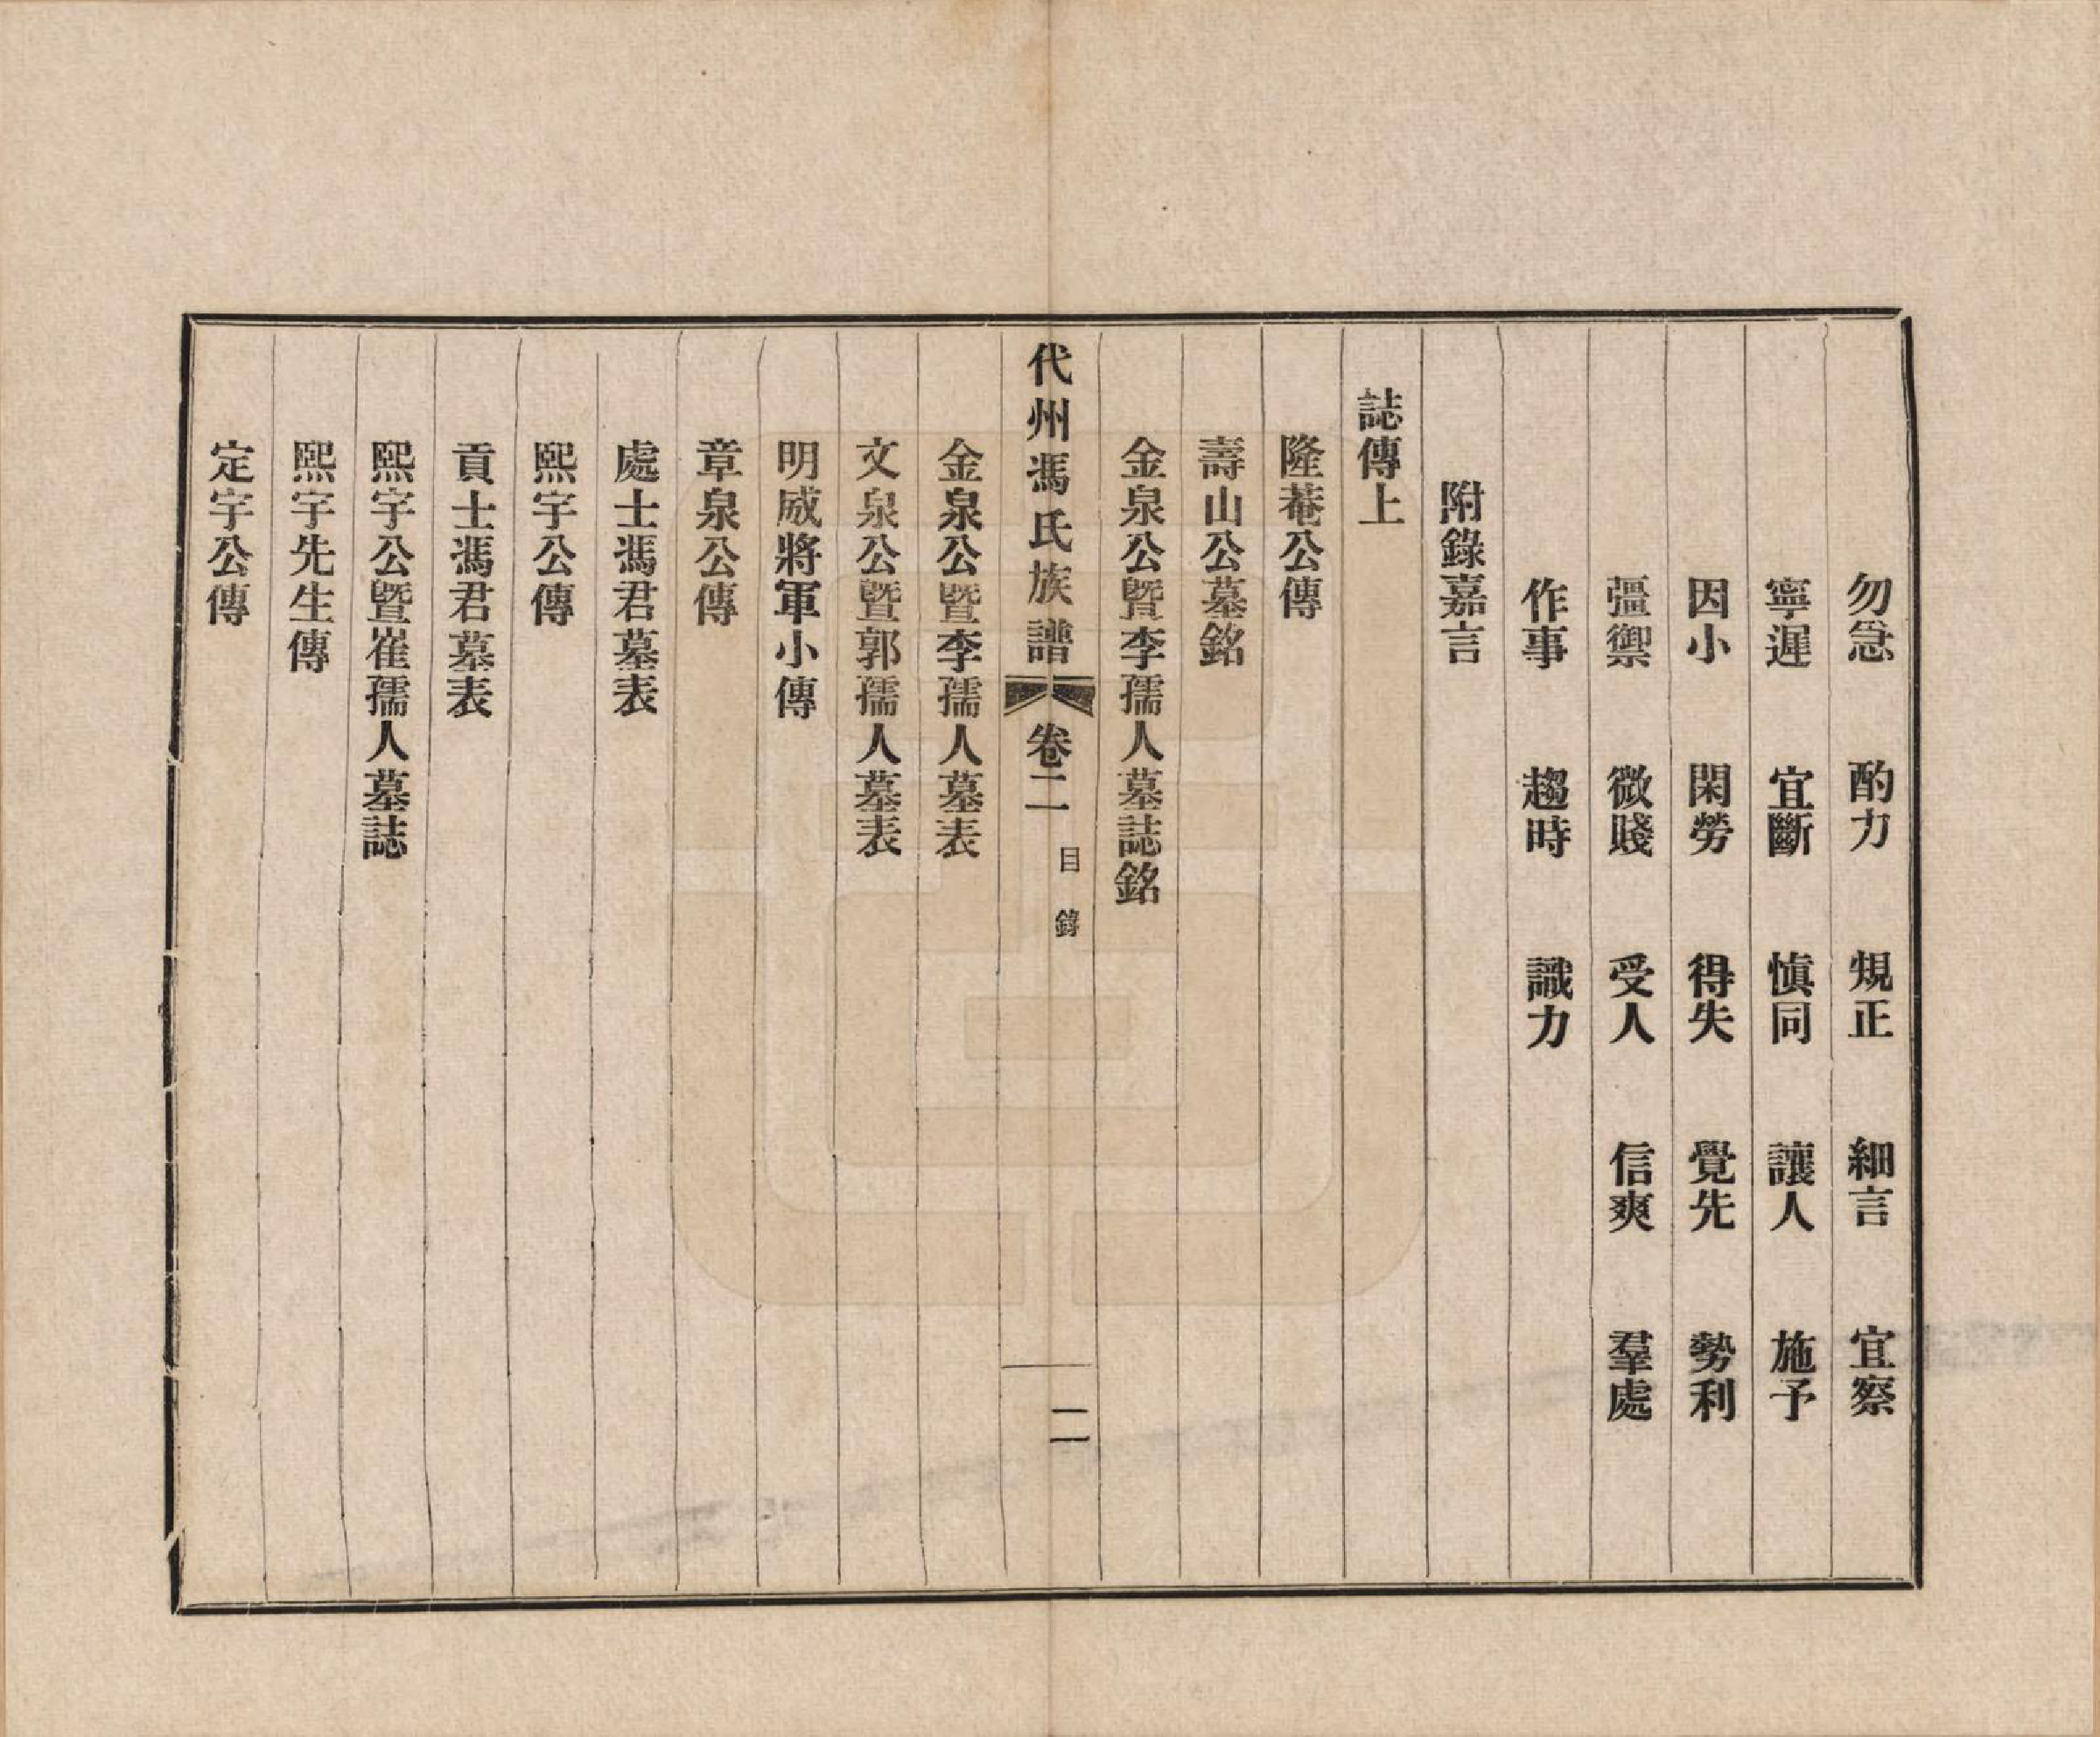 勿怠　酌力　規正　細言　宜察
寧遲　宜斷　慎同　讓人　施予
因小　閑勞　得失　覺先　勢利
彊禦　微賤　受人　信爽　羣處
作事　趨時　識力
附錄嘉言
誌傳上
隆菴公傳
壽山公墓銘
金泉公暨李孺人墓誌銘
代州馮氏族譜　卷二　目錄　二
金泉公暨李孺人墓表
文泉公暨郭孺人墓表
明威將軍小傳
章泉公傳
處士馮君墓表
熙宇公傳
貢士馮君墓表
熙宇公暨崔孺人墓誌
熙宇先生傳
定宇公傳